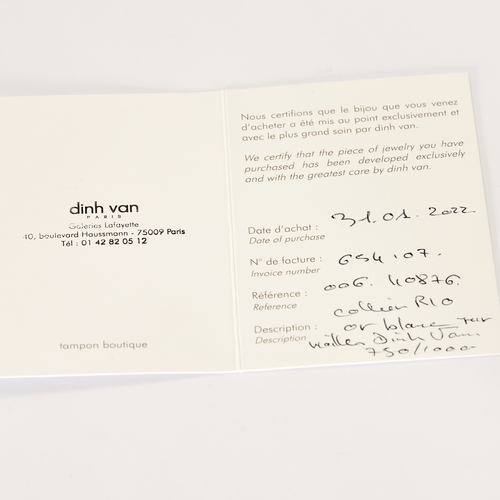 dinh van
PARIS
Galeries Lafayette
40, boulevard Haussmann - 75009 Paris
Tél : 01 42 82 05 12
tampon boutique
Nous certifions que le bijou que vous venez
d'acheter a été mis au point exclusivement et
avec le plus grand soin par dinh van.
We certify that the piece of jewelry you have
purchased has been developed exclusively
and with the greatest care by dinh van.
Date d'achat : 31.01.2022
Date of purchase
N° de facture : 654107.
Invoice number
Référence : 006.40876.
Reference
collier R10
Description : or blanc
Description mailles Dinh Van
750/1000